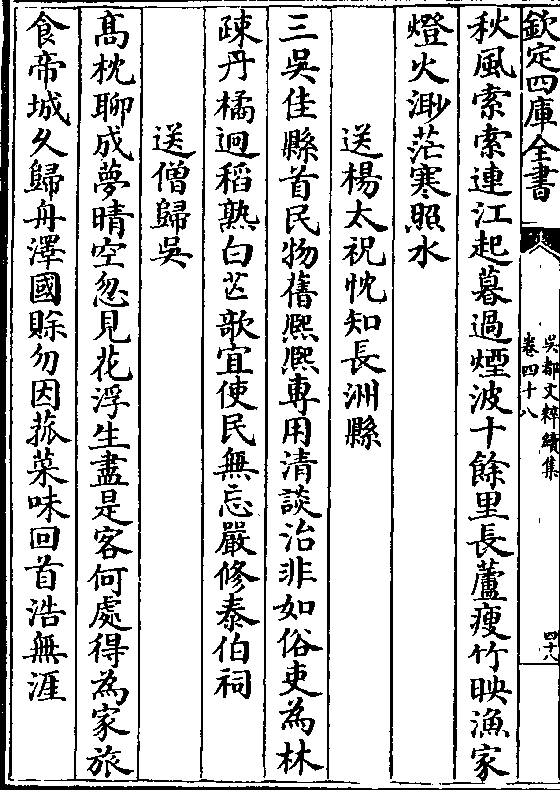 欽定四庫全書
吳都文粹續集
卷四十八
四十八
秋風索索連江起暮過煙波十餘里長蘆瘦竹映漁家
燈火渺茫寒照水
送楊太祝忱知長洲縣
三吳佳縣首民物舊熈熈專用清談治非如俗吏為林
疎丹橘迥稻熟白芒歌宜使民無忘嚴修泰伯祠
送僧歸吳
髙枕聊成夢晴空忽見花浮生盡是客何處得為家旅
食帝城久歸舟澤國賖勿因菰菜味回首浩無涯